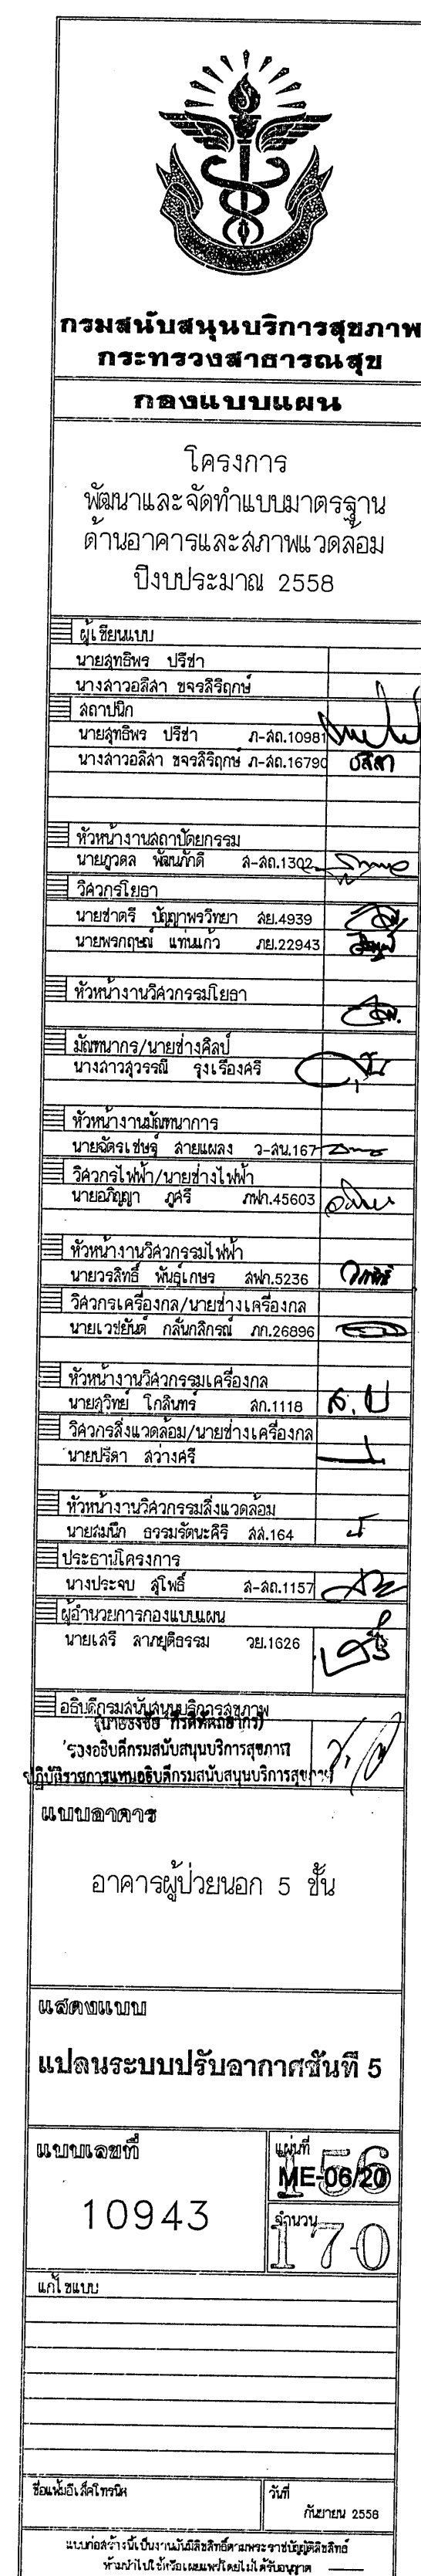 กรมสนับสนุนบริการสุขภาพ
กระทรวงสาธารณสุข
กองแบบแผน
โครงการ
พัฒนาและจัดทำแบบมาตรฐาน
ด้านอาคารและสภาพแวดล้อม
ปีงบประมาณ 2558
ผู้เขียนแบบ
นายสุทธิพร ปรีชา
นางสาวอลิสา ขจรสิริฤกษ์
สถาปนิก
นายสุทธิพร ปรีชา ภ-สถ.10981
นางสาวอลิสา ขจรสิริฤกษ์ ภ-สถ.16790 อลิสา
หัวหน้างานสถาปัตยกรรม
นายภูวดล พัฒนภักดี ส-สถ.1302
วิศวกรโยธา
นายชาตรี ปัญญาพรวิทยา สย.4939
นายพรกฤษณ์ แท่นแก้ว ภย.22943
หัวหน้างานวิศวกรรมโยธา
มัณฑนากร/นายช่างศิลป์
นางสาวสุวรรณี รุงเรืองศรี
หัวหน้างานมัณฑนาการ
นายฉัตรเชษฐ์ สายแผลง ว-สน.167
วิศวกรไฟฟ้า/นายช่างไฟฟ้า
นายอภิญญา ภูศรี ภฟก.45603
หัวหน้างานวิศวกรรมไฟฟ้า
นายวรสิทธิ์ พันธุ์เกษร สฟก.5236
วิศวกรเครื่องกล/นายช่างเครื่องกล
นายเวชยันต์ กลั่นกลิกรณ์ ภก.26896
หัวหน้างานวิศวกรรมเครื่องกล
นายสุวิทย์ โกสินทร์ สก.1118
วิศวกรสิ่งแวดล้อม/นายช่างเครื่องกล
นายปรีดา สว่างศรี
หัวหน้างานวิศวกรรมสิ่งแวดล้อม
นายสมนึก ธรรมรัตนะคิริ สส.164
ประธานโครงการ
นางประจบ สุโพธิ์ ส-สถ.1157
ผู้อำนวยการกองแบบแผน
นายเสรี ลาภยุติธรรม วย.1626
อธิบดีกรมสนับสนุนบริการสุขภาพ
รองอธิบดีกรมสนับสนุนบริการสุขภาพ
ปฏิบัติราชการแทนอธิบดีกรมสนับสนุนบริการสุขภาพ
แบบอาคาร
อาคารผู้ป่วยนอก 5 ชั้น
แสดงแบบ
แปลนระบบปรับอากาศชั้นที่ 5
แบบเลขที่
10943
แผ่นที่
156
ME-06/20
จำนวน
170
แก้ไขแบบ
ชื่อแฟ้มอิเล็คโทรนิค
วันที่
กันยายน 2558
แบบก่อสร้างนี้เป็นงานอันมีลิขสิทธิ์ตามพระราชบัญญัติลิขสิทธิ์
ห้ามนำไปใช้หรือเผยแพร่โดยไม่ได้รับอนุญาต